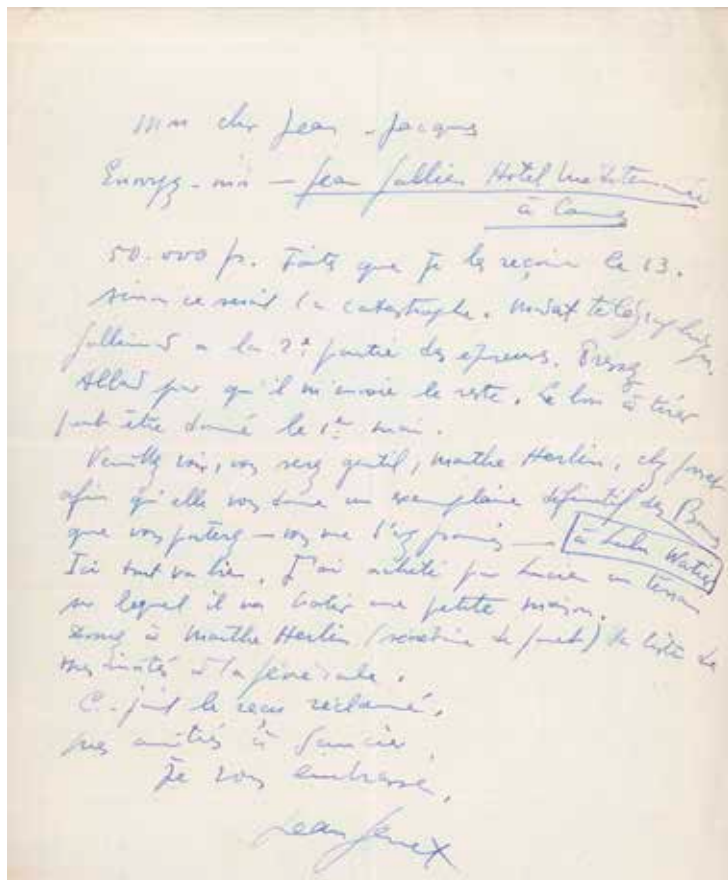 Mon cher Jean-Jacques
Envoyez-moi — Jean Gallien Hotel Méditerranée
à Cannes
50.000 frs. Faites que je les reçoive le 13.
sinon ce serait la catastrophe. Mandat télégraphique
Gallimard a la 2e partie des épreuves. Pressez
Allard pour qu'il m'envoie le reste. Le bon à tirer
peut être donné le 1er mai.
Veuillez voir, vous serez gentil, Marthe Herlin, chez Jouvet
afin qu'elle vous donne un exemplaire définitif des Bonnes
que vous porterez — vous me l'avez promis — à Lulu Watier
Ici tout va bien. J'ai acheté pour Lucien un terrain
sur lequel il va bâtir une petite maison.
Donnez à Marthe Herlin (secrétaire de Jouvet) la liste de
mes invités à la générale.
C. joint le reçu réclamé.
mes amitiés à
Je vous embrasse.
Jean Genet